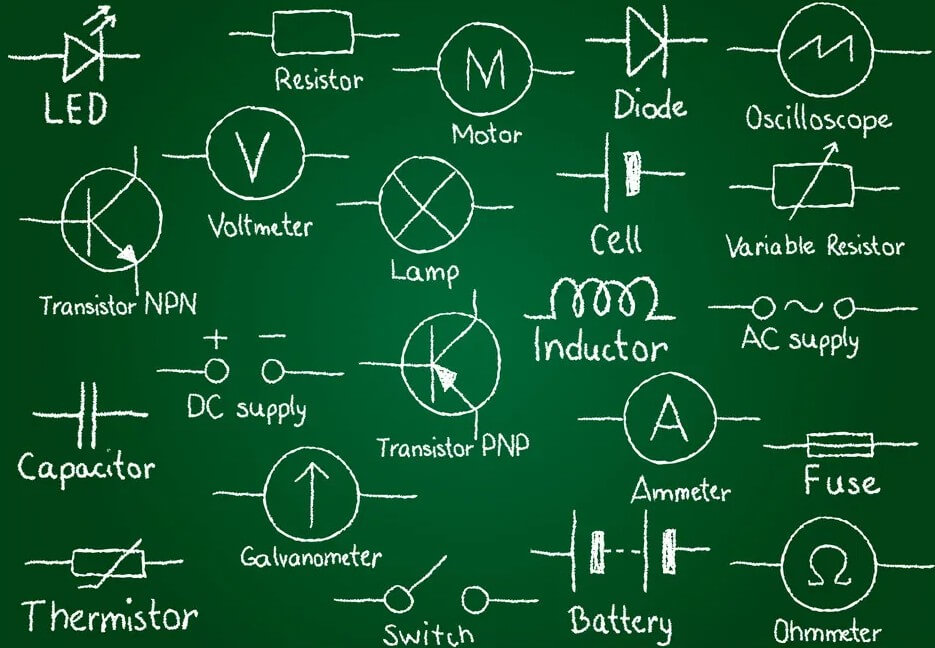 LED
Resistor
M
Motor
Diode
Oscilloscope
V
Voltmeter
Lamp
Cell
Variable Resistor
Transistor NPN
+ −
DC supply
Inductor
~
AC supply
Transistor PNP
Capacitor
A
Ammeter
Fuse
Galvanometer
Thermistor
Switch
Battery
Ω
Ohmmeter